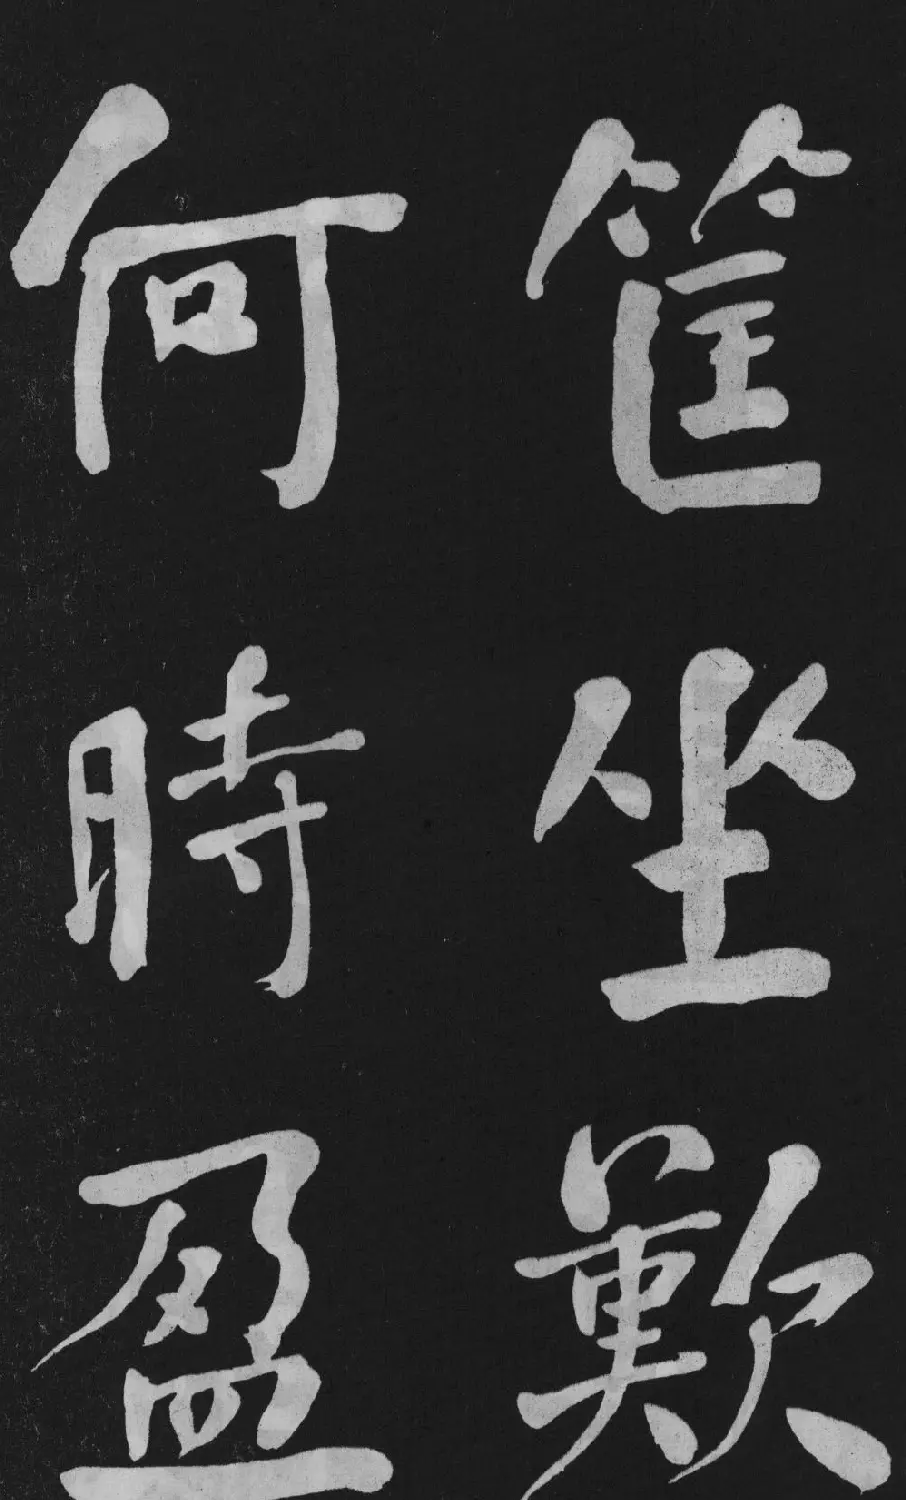 筐坐歎
何時盈